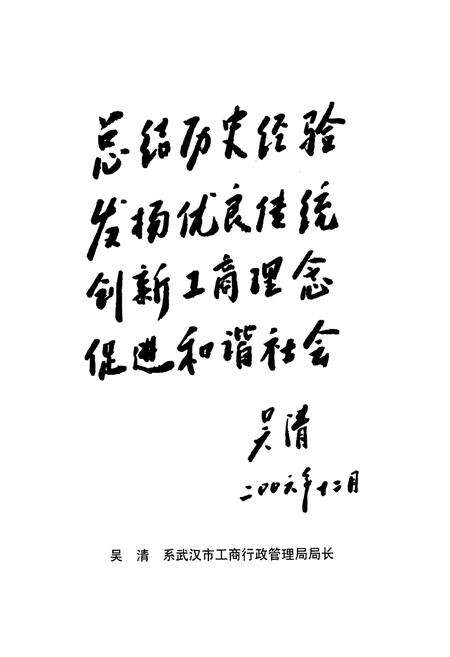 总结历史经验
发扬优良佳统
创新工商理念
促进和谐社会
吴清
二〇〇六年十二月
吴 清 系武汉市工商行政管理局局长